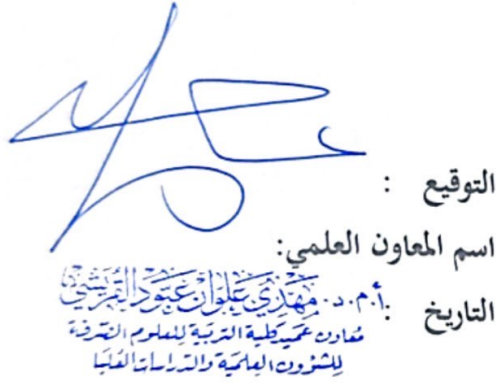 التوقيع :
اسم المعاون العلمي:
التاريخ :
أ.م.د. مهدي علوان عبود القريشي
معاون عميد كلية التربية للعلوم الصرفة
للشؤون العلمية والدراسات العليا